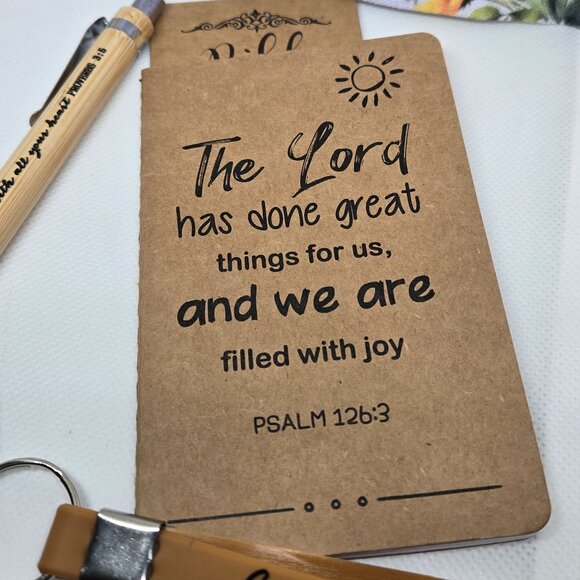 The Lord
has done great
things for us,
and we are
filled with joy
PSALM 126:3
with all your heart PROVERBS 3:5